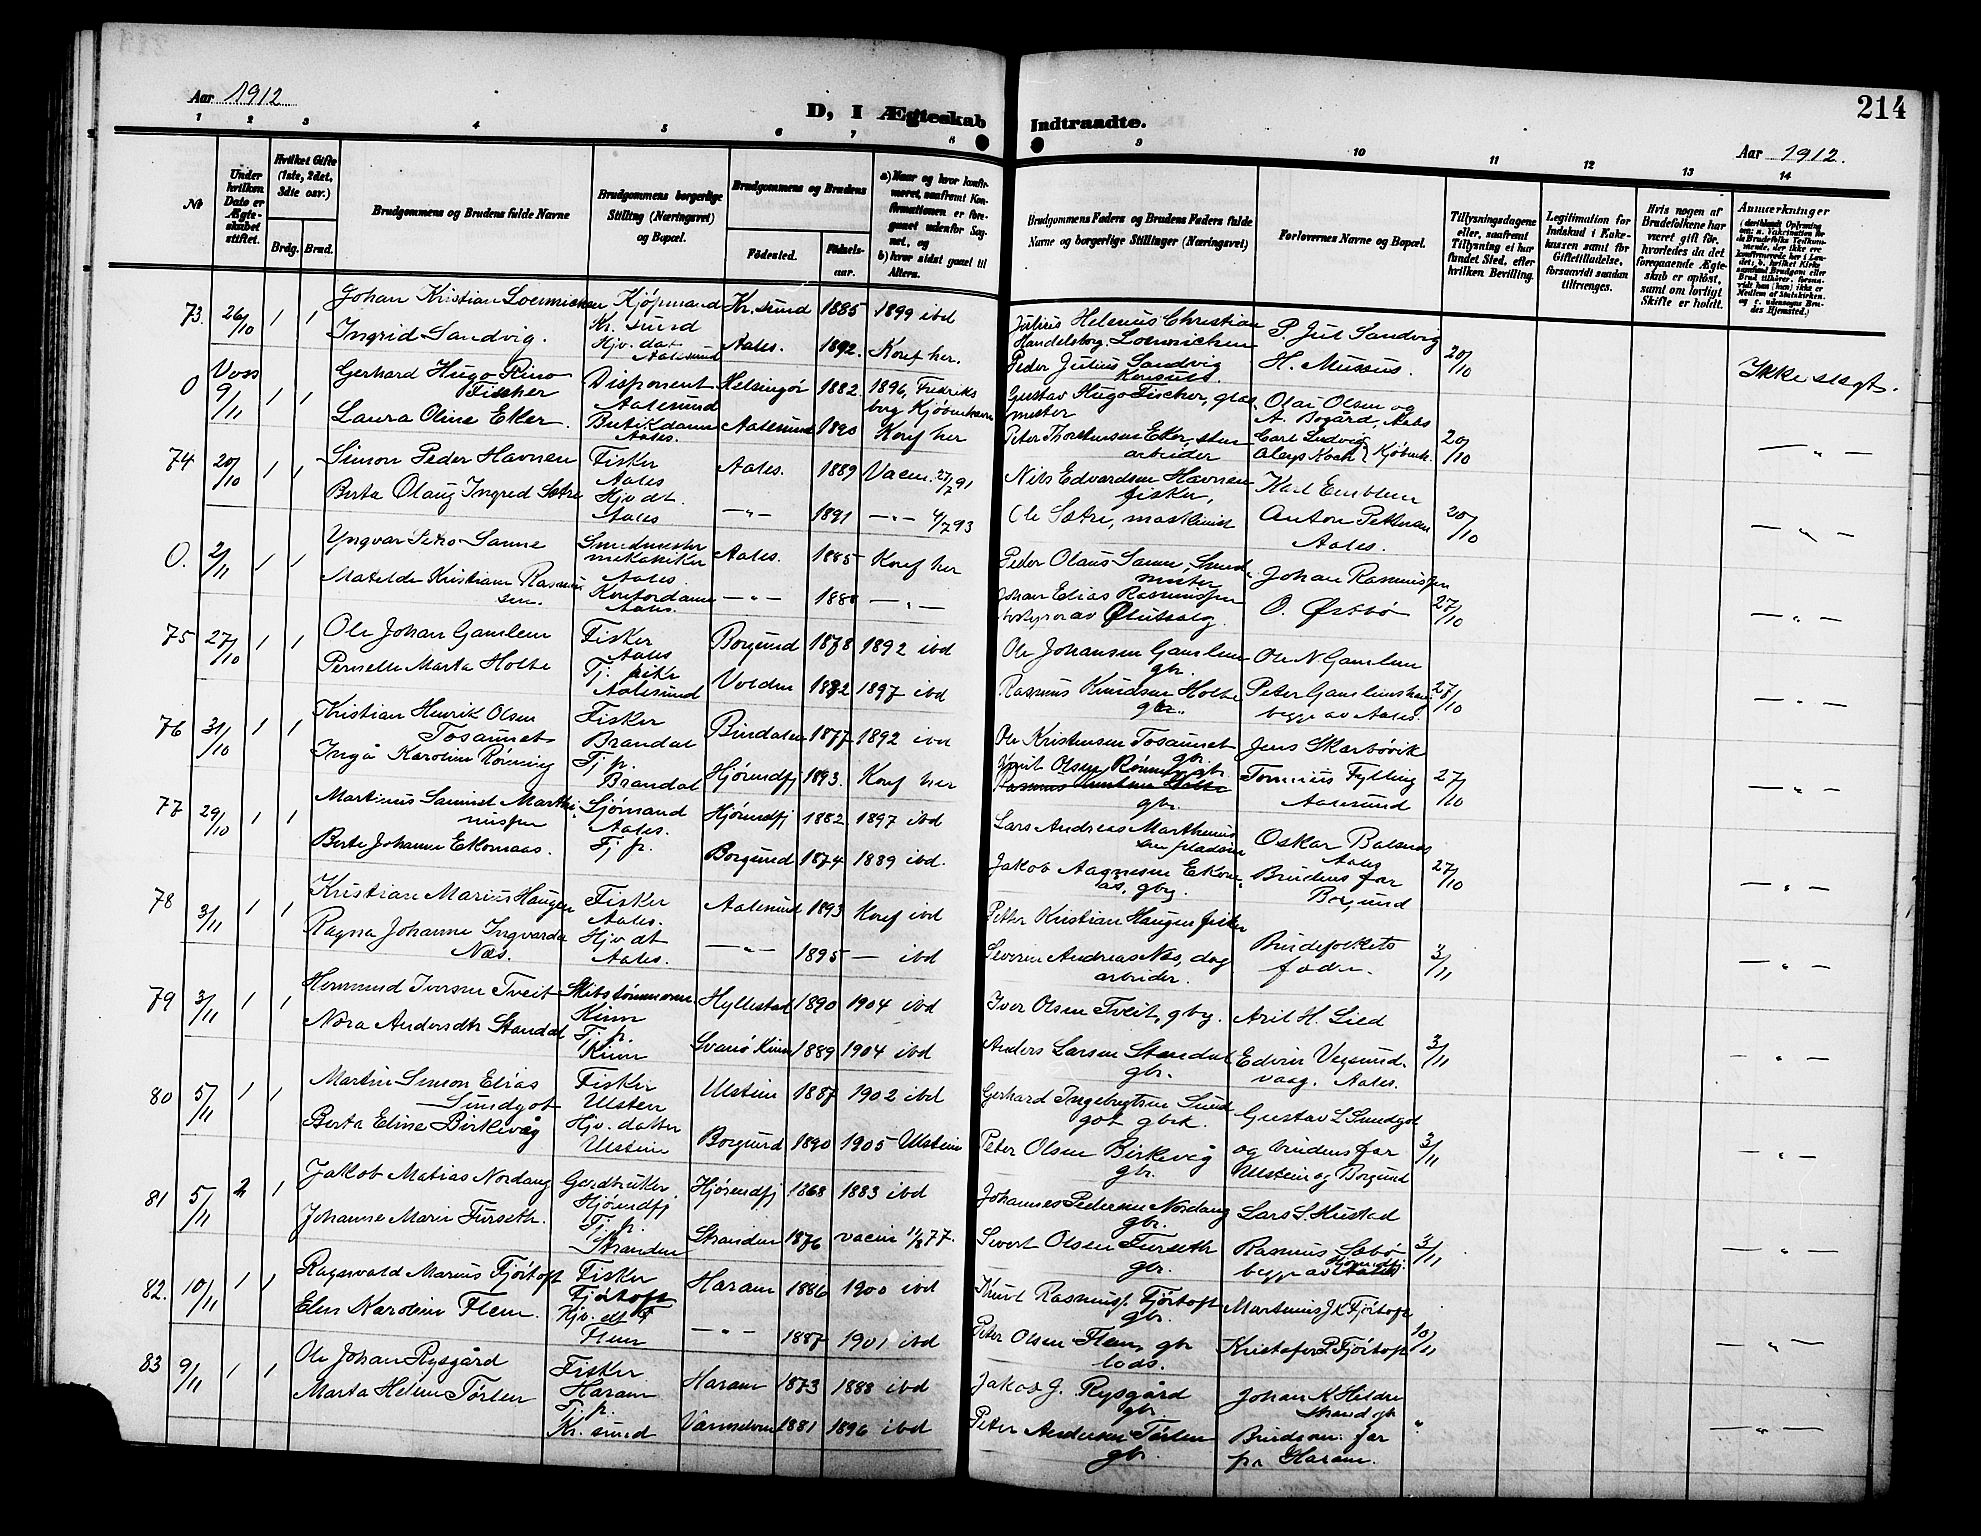 Aar 1912
D, I Ægteskab
Indtraadte.
214
Aar 1912.
1 2 3 4 5 6 7 8 9 10 11 12 13 14
No
Under hvilken Dato er Ægteskabet stiftet.
Hvilket Gifte (1ste, 2det, 3die osv.)
Brdg. Brud.
Brudgommens og Brudens fulde Navne
Brudgommens borgerlige Stilling (Næringsvei) og Bopæl.
Brudgommens og Brudens
Fødested. Fødselsaar.
a) Naar og hvor konfirmeret, saafremt Konfirmationen er foregaaet udenfor Sognet, og b) hvor sidst gaaet til Alters.
Brudgommens Faders og Brudens Faders fulde Navne og borgerlige Stillinger (Næringsvei)
Forlovernes Navne og Bopæl.
Tillysningsdagene eller, saafremt Tillysning ei har fundet Sted, efter hvilken Bevilling.
Legitimation for Indskud i Enkekassen samt for Giftetilladelse, forsaavidt saadan tiltrænges.
Hvis nogen af Brudefolkene har været gift før, hvorledes da det foregaaende Ægteskab er opløst, samt om lovligt Skifte er holdt.
Anmærkninger
73. 26/10 1 1 Johan Kristian Loennichen Kjøpmand Kr. sund Kr. sund 1885 1899 ibd Julius Helenius Christian Loennichen Handelsborg. P. Jul Sandvig
Ingrid Sandvig. Hjv. dat Aalesund Aales. 1892. Konf her. Peder Julius Sandvig Konsul H. Mussus. 20/10 Ikke slegt.
0 Voss 9/11 1 1 Gerhard Hugo Rino Fischer Disponent Aalesund Helsingør 1882 1896, Fredriksborg Kjøbenhavn Gustav Hugo Fischer, glasmester Olai Olsen og A. Bogård, Aales
Laura Oline Eker. Butikdame Aales. Aalesund 1890 Konf her Peter Thorstensen Eker, stenarbeider Carl Ludvig Aloys Koch Kjøbenh. 20/10 — " —
74 20/10 1 1 Simon Peder Havnen Fisker Aales Aales. 1889 Vacin. 27/7 91 Nils Edvardsen Havnen fisker, Karl Emblem
Berta Olaug Ingred Sætre Hjv dt. Aales — " — 1891 — " — 4/7 93 Ole Sætre, maskinist Anton Pettersen Aales. 20/10 — " —
0. 2/11 1 1 Yngvar Sanne Smedmester mekaniker Aales. Aales. 1885 Konf her Peder Olaus Sanne, Smedmester Johan Rasmussen
Matilde Kristiane Rasmussen. Kontordame Aales. — " — 1888 — " — Johan Elias Rasmussen bestyrer av Ølutsalg. O. Østbø 27/10 — " —
75 27/10 1 1 Ole Johan Gamlem Fisker Aales Borgund 1878 1892 ibd Ole Johansen Gamlem gbr. Ole N Gamlem
Pernelle Marta Holte Tj. pike Aalesund Volden 1882 1897 ibd Rasmus Knudsen Holte gbr. Peter Gamlemshaug begge av Aales. 27/10 — " —
76 31/10 1 1 Kristian Henrik Olsen Tosaunet Fisker Brandal Bindalen 1877 1892 ibd Ole Kristensen Tosaunet gbr. Jens Skarbøvik
Inga Karoline Rønning Tj. p. Brandal Hjørundfj 1893. Konf her Olsen Rønning gbr. Rasmus Knudsen Holte gbr. Tomas Fylling Aalesund 27/10 — " —
77 29/10 1 1 Martinus Samuel Marthinussen Sjømand Aales. Hjørundfj 1882 1897 ibd Lars Andreas Marthinussen Oskar Balsnes Aales
Berte Johanne Ekornaas. Tj p. Borgund 1874 1889 ibd. Jakob Aagnesen Ekornaas, gbr. Brudens far Borgund 27/10 — " —
78 3/11 1 1 Kristian Marius Haugen Fisker Aales. Aalesund 1893 Konf ibd Petter Kristian Haugen fisker
Ragna Johanne Ingvarda Næs. Hjv dt Aales. — " — 1895 — ibd Severin Andreas Næs, dagarbeider. Brudefolkets fædre. 3/11 — " —
79 3/11 1 1 Hermund Iversen Tveit Skibstømmerm Kinn Hyllestad 1890 1904 ibd Iver Olsen Tveit, gbr. Aril H. Lied
Nora Andersdtr Standal Tj. p. Kinn Svanø Kinn 1889 1904 ibd Anders Larsen Standal gbr. Edvin Vegsundvaag. Aales. 3/11 — " —
80 5/11 1 1 Martin Simon Elias Sundgot Fisker Ulsten Ulstein 1887 1902 ibd Gerhard Ingebrigtsen Sundgot gbrk. Gustav L Sundgot
Berta Eline Birkevåg Hjv. datter Ulstein Borgund 1890 1905 Ulstein Peter Olsen Birkevåg gbr. og brudens far Ulstein og Borgund 3/11 — " —
81 5/11 2 1 Jakob Matias Nordang Gardbruker. Hjørundfj Hjørundfj 1868 1883 ibd Johannes Pedersen Nordang gbr. Lars S. Hustad
Johanne Marie Furseth. Tj. p. Stranden Stranden 1876 vacin 11/8 77. Sivert Olsen Furseth gbr. Rasmus Sæbø begge av Hjørundfj. 3/11 — " —
82. 10/11 1 1 Ragnvald Marius Fjørtoft Fisker Fjørtoft Haram 1886 1900 ibd Knut Rasmuss. Fjørtoft gbr. Martinus J.K Fjørtoft
Elen Karoline Flem. Hjv. dt Flem — " — 1887 1901 ibd Peter Olsen Flem, gbr lods. Kristofer P Fjørtoft 10/11 — " —
83 9/11 1 1 Ole Johan Rysgård Fisker. Haram Haram 1873 1888 ibd Jakob J. Rysgård gbr. Johan K Hildre Strand gbr
Marta Helene Tørlen Tj. p. Kr. sund 1881 1896 ibd Peter Andersen Tørlen gbr. Brudgom. far fra Haram. " — " —